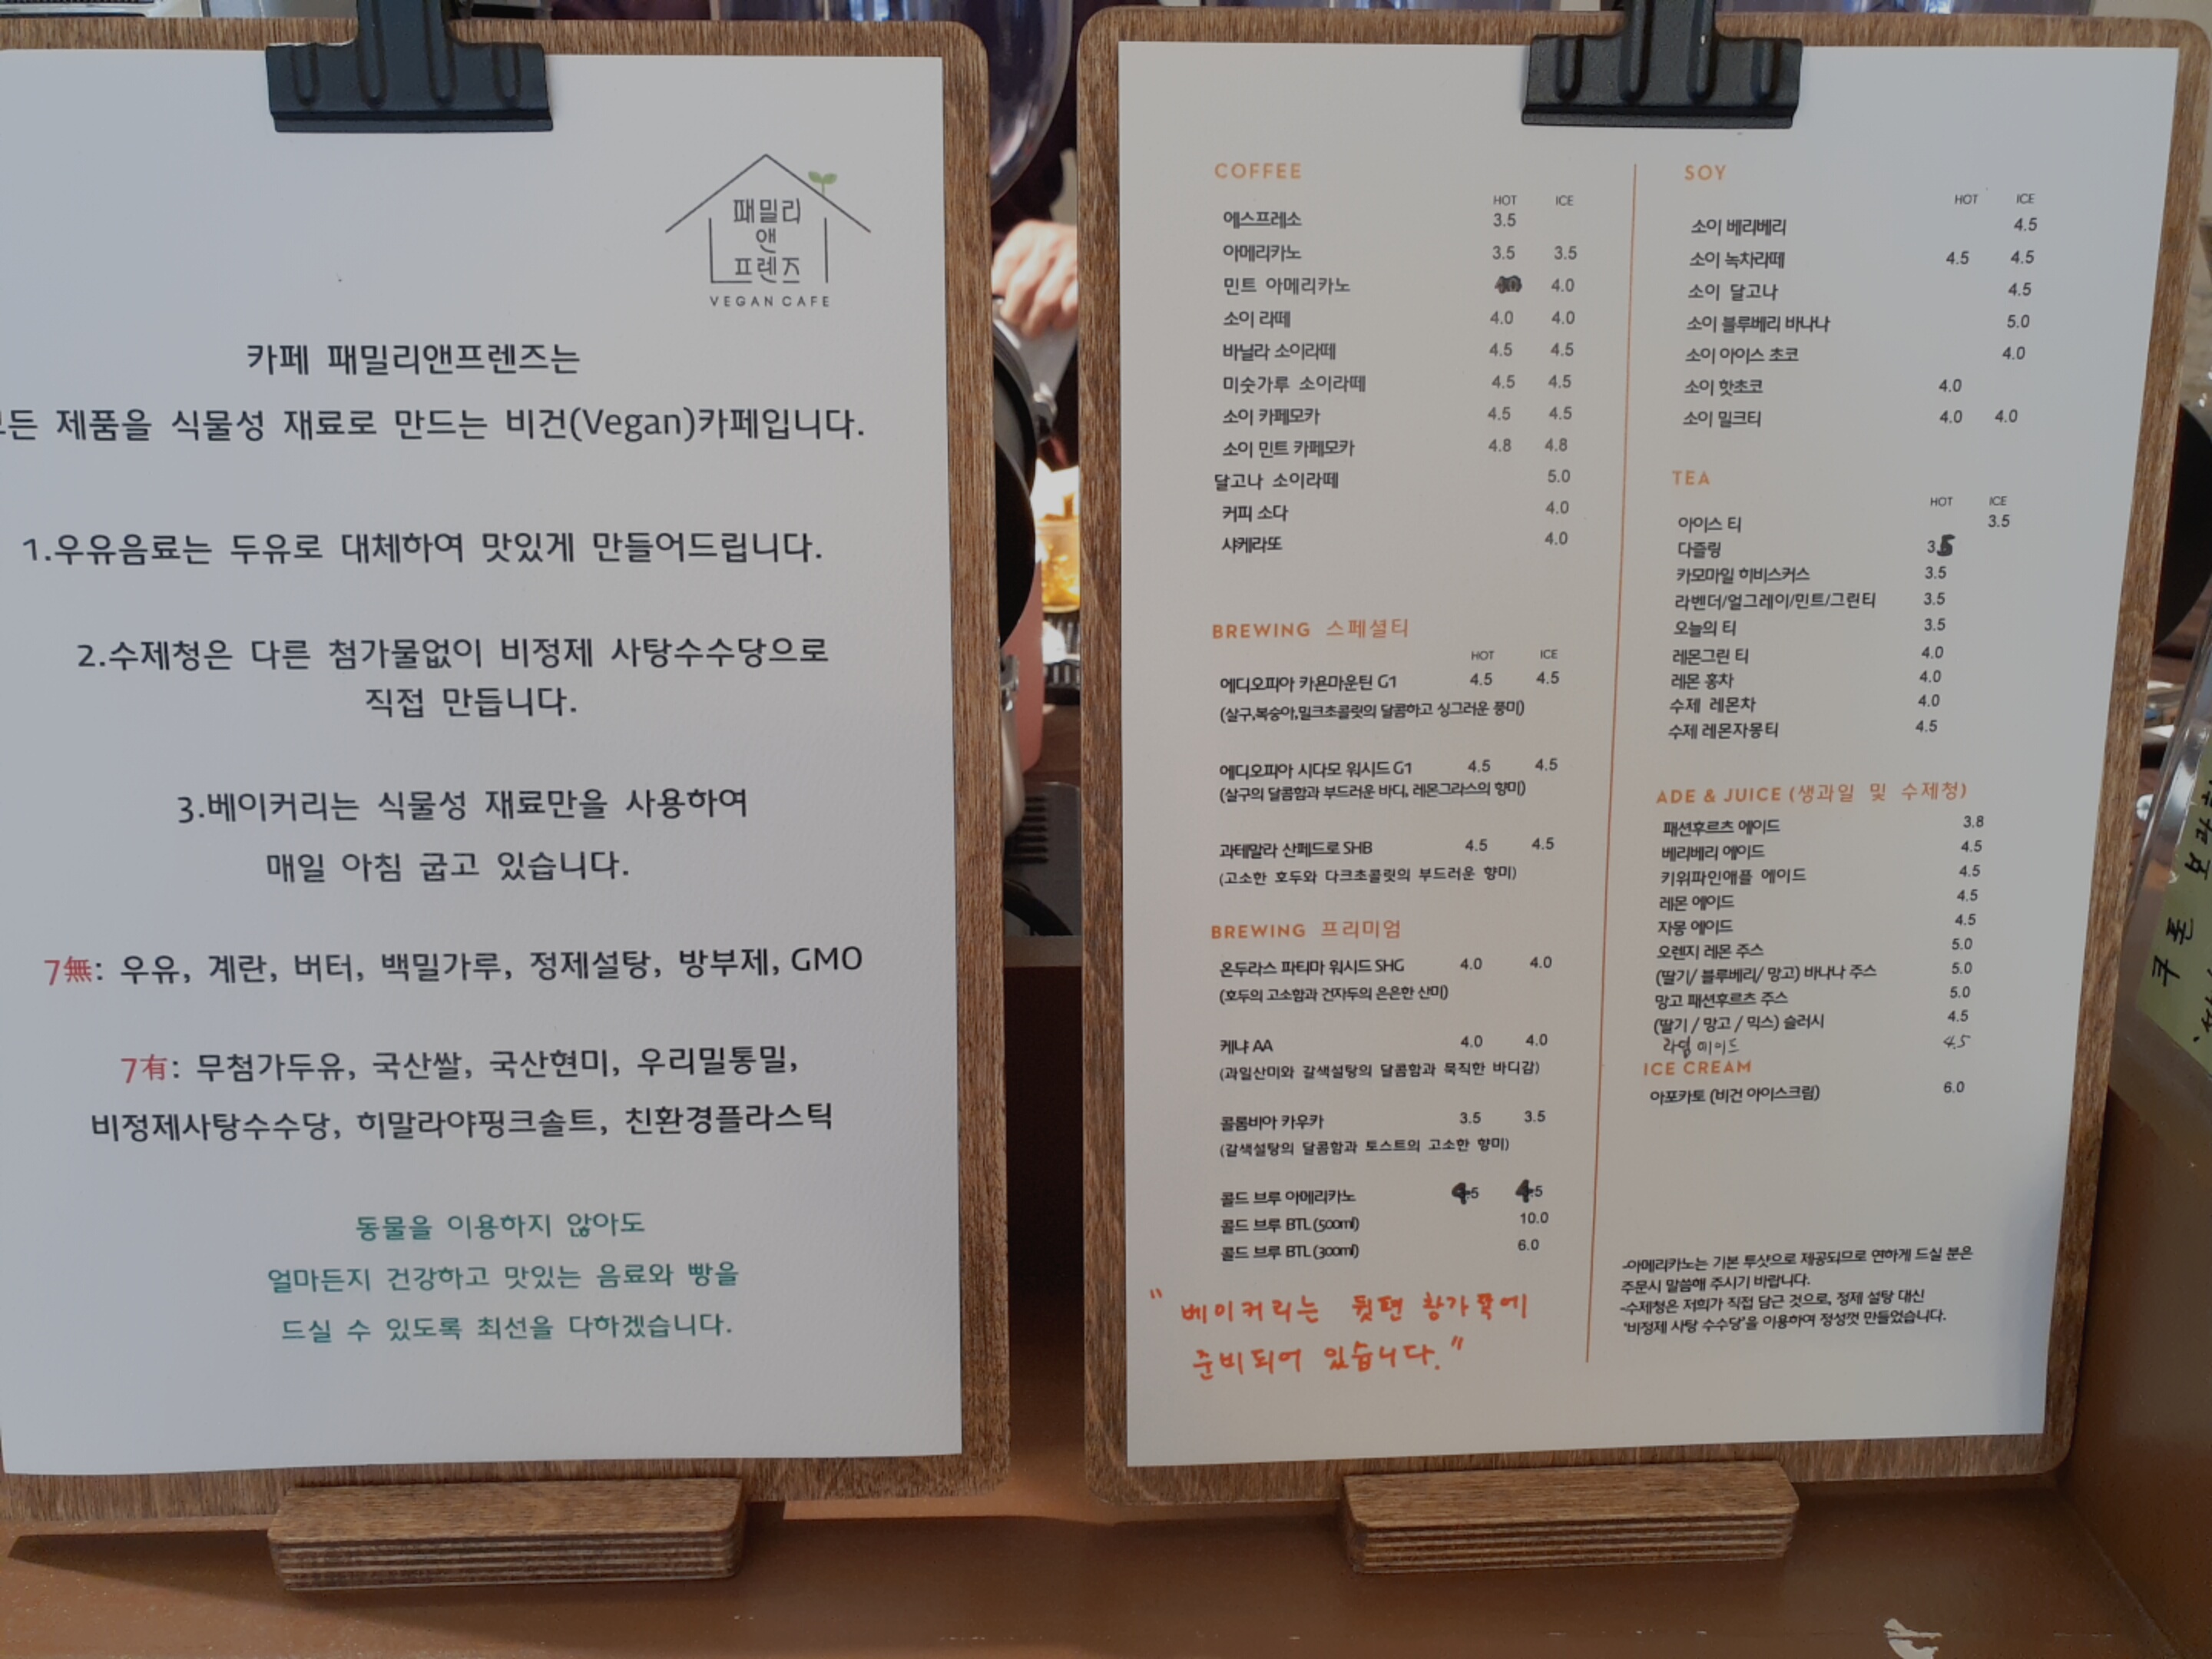 패밀리
앤
프렌즈
VEGAN CAFE
카페 패밀리앤프렌즈는
제품을 식물성 재료로 만드는 비건(Vegan)카페입니다.
1.우유음료는 두유로 대체하여 맛있게 만들어드립니다.
2.수제청은 다른 첨가물없이 비정제 사탕수수당으로
직접 만듭니다.
3.베이커리는 식물성 재료만을 사용하여
매일 아침 굽고 있습니다.
7無: 우유, 계란, 버터, 백밀가루, 정제설탕, 방부제, GMO
7有: 무첨가두유, 국산쌀, 국산현미, 우리밀통밀,
비정제사탕수수당, 히말라야핑크솔트, 친환경플라스틱
동물을 이용하지 않아도
얼마든지 건강하고 맛있는 음료와 빵을
드실 수 있도록 최선을 다하겠습니다.
COFFEE
HOT ICE
에스프레소 3.5
아메리카노 3.5 3.5
민트 아메리카노 4.0
소이 라떼 4.0 4.0
바닐라 소이라떼 4.5 4.5
미숫가루 소이라떼 4.5 4.5
소이 카페모카 4.5 4.5
소이 민트 카페모카 4.8 4.8
달고나 소이라떼 5.0
커피 소다 4.0
샤케라또 4.0
BREWING 스페셜티
HOT ICE
에디오피아 카욘마운틴 G1 4.5 4.5
(살구,복숭아,밀크초콜릿의 달콤하고 싱그러운 풍미)
에디오피아 시다모 워시드 G1 4.5 4.5
(살구의 달콤함과 부드러운 바디, 레몬그라스의 향미)
과테말라 산페드로 SHB 4.5 4.5
(고소한 호두와 다크초콜릿의 부드러운 향미)
BREWING 프리미엄
온두라스 파티마 워시드 SHG 4.0 4.0
(호두의 고소함과 건자두의 은은한 산미)
케냐 AA 4.0 4.0
(과일산미와 갈색설탕의 달콤함과 묵직한 바디감)
콜롬비아 카우카 3.5 3.5
(갈색설탕의 달콤함과 토스트의 고소한 향미)
콜드 브루 아메리카노 4.5 4.5
콜드 브루 BTL (500ml) 10.0
콜드 브루 BTL (300ml) 6.0
"베이커리는 뒷편 창가쪽에
준비되어 있습니다."
SOY
HOT ICE
소이 베리베리 4.5
소이 녹차라떼 4.5 4.5
소이 달고나 4.5
소이 블루베리 바나나 5.0
소이 아이스 초코 4.0
소이 핫초코 4.0
소이 밀크티 4.0 4.0
TEA
HOT ICE
아이스 티 3.5
다즐링 3.5
카모마일 히비스커스 3.5
라벤더/얼그레이/민트/그린티 3.5
오늘의 티 3.5
레몬그린 티 4.0
레몬 홍차 4.0
수제 레몬차 4.0
수제 레몬자몽티 4.5
ADE & JUICE (생과일 및 수제청)
패션후르츠 에이드 3.8
베리베리 에이드 4.5
키위파인애플 에이드 4.5
레몬 에이드 4.5
자몽 에이드 4.5
오렌지 레몬 주스 5.0
(딸기/ 블루베리/ 망고) 바나나 주스 5.0
망고 패션후르츠 주스 5.0
(딸기 / 망고 / 믹스) 슬러시 4.5
라임 에이드 4.5
ICE CREAM
아포카토 (비건 아이스크림) 6.0
-아메리카노는 기본 투샷으로 제공되므로 연하게 드실 분은
주문시 말씀해 주시기 바랍니다.
-수제청은 저희가 직접 담근 것으로, 정제 설탕 대신
'비정제 사탕 수수당'을 이용하여 정성껏 만들었습니다.